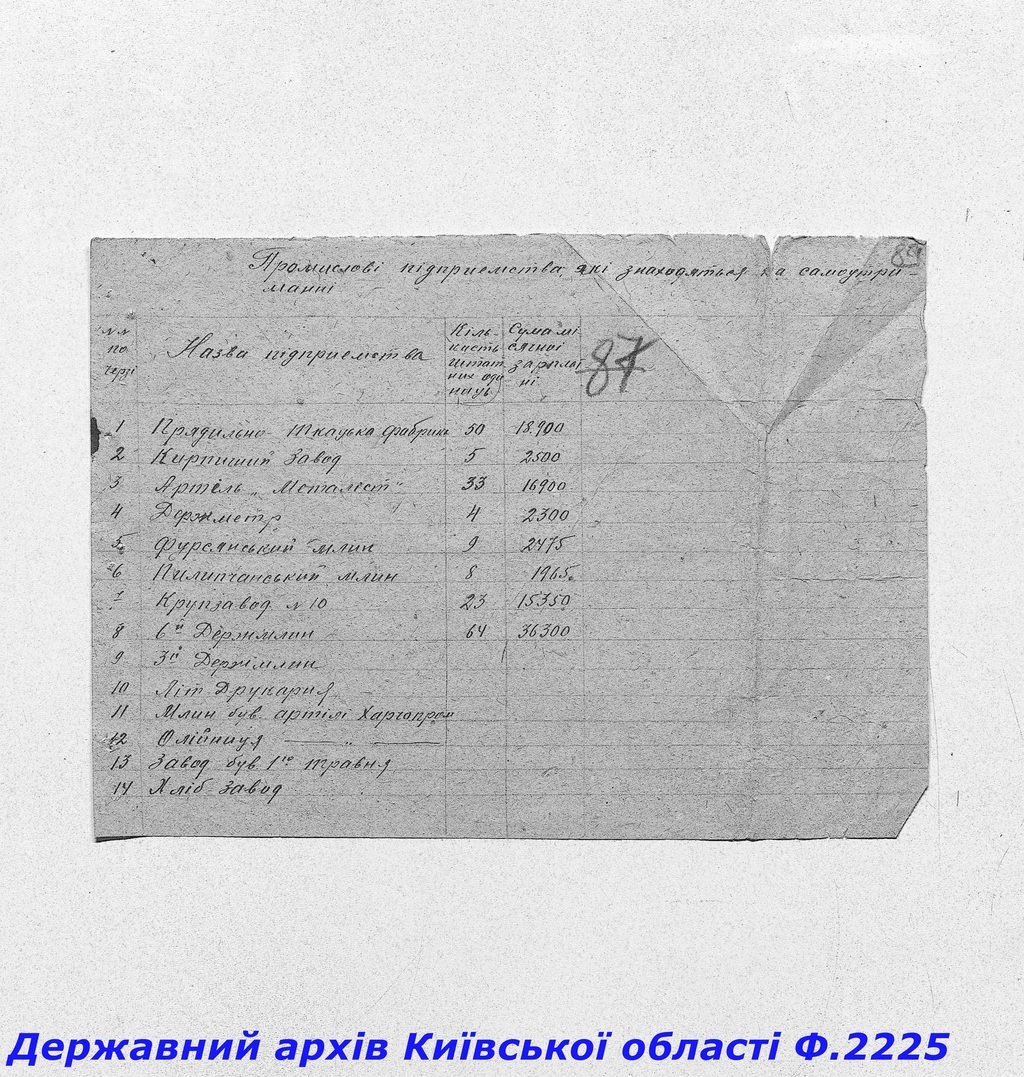 89
Промислові підприемства, які знаходяться на самоутри-
манні
№№ по черзі
Назва підприемства
Кіль-кость штатних одиниць
Сума місячної зарплатні
87
1 Прядильно-Ткацька фабрика 50 18.900
2 Кирпичний Завод 5 2500
3 Артель „Металіст" 33 16900
4 Держметр 4 2300
5 Фурсянський млин 9 2475
6 Пилипчанський млин 8 1965
7 Крупзавод №10 23 15350
8 6й Держмлин 64 36300
9 3й Держмлин
10 Літ Друкарня
11 Млин був. артілі Харчопром
12 Олійниця — „ —
13 Завод був. 1го травня
14 Хліб завод
Державний архів Київської області Ф.2225